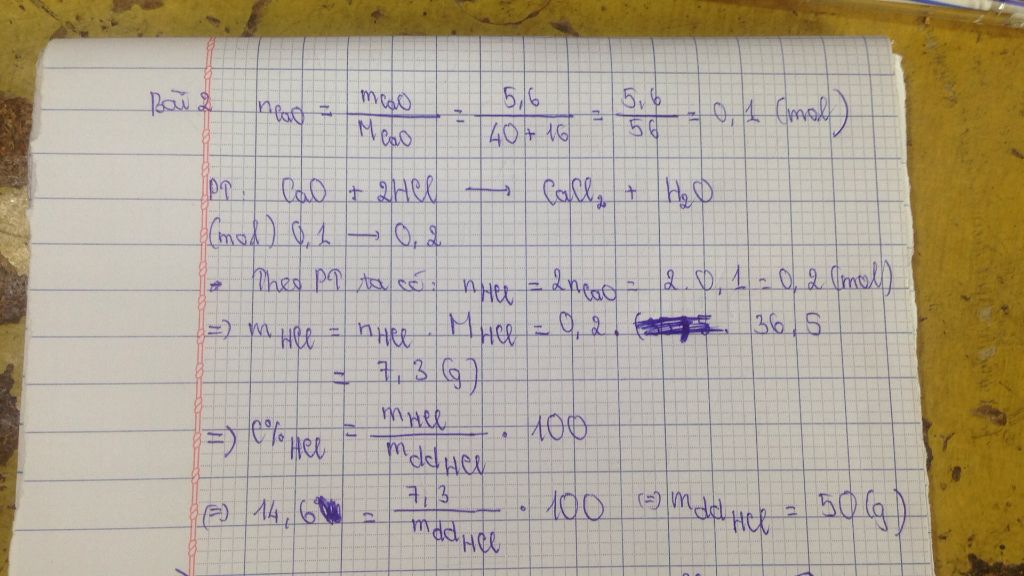 Bài 2 nCaO = mCaO / MCaO = 5,6 / 40+16 = 5,6 / 56 = 0,1 (mol)
PT: CaO + 2HCl → CaCl₂ + H₂O
(mol) 0,1 → 0,2
- Theo PT ta có: nHCl = 2nCaO = 2.0,1 = 0,2 (mol)
=> mHCl = nHCl . MHCl = 0,2 . 36,5
= 7,3 (g)
=> C%HCl = mHCl / mddHCl . 100
(=) 14,6 = 7,3 / mddHCl . 100 (=) mddHCl = 50 (g)